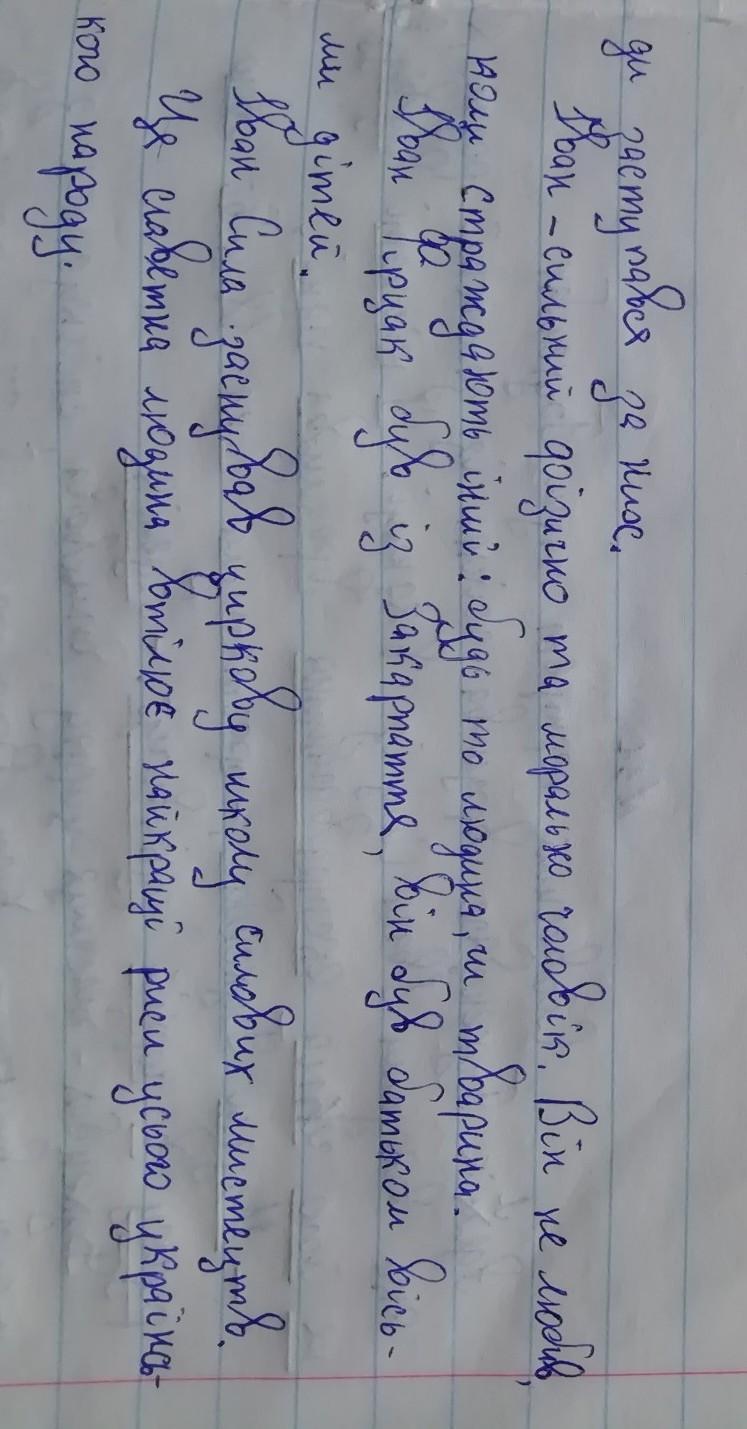 ди заступався за них.
Іван - сильний фізично та морально чоловік. Він не любив,
коли страждають інші: будь то людина, чи тварина.
Іван Фірцак був із Закарпаття, він був батьком вісь-
ми дітей.
Іван Сила заснував циркову школу силових мистецтв.
Ця славетна людина втілює найкращі риси усього українсь-
кого народу.